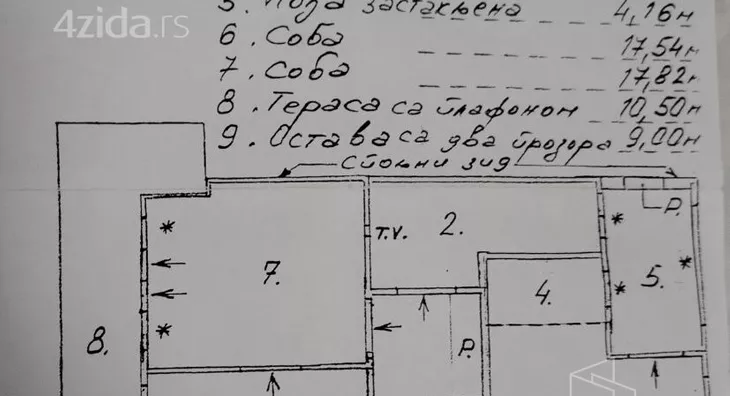 4zida.rs
5. Лођа застакљена 4,16м
6. Соба 17,54м
7. Соба 17,82м
8. Тераса са плафоном 10,50м
9. Остава са два прозора 9,00м
Спољни зид
P.
T.V.
2.
7.
4.
5.
8.
P.